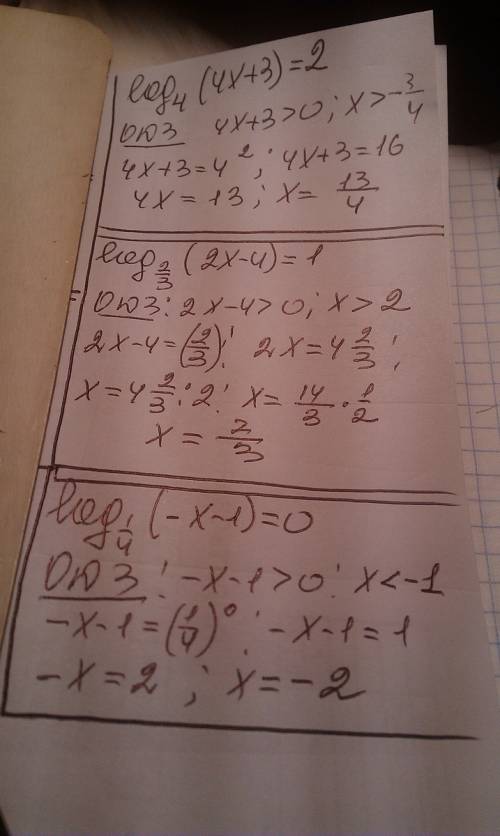 log₄ (4x+3) = 2
ОЮЗ 4x+3>0; x>-3/4
4x+3=4²; 4x+3=16
4x=13; x= 13/4
log_{2/3} (2x-4) = 1
ОЮЗ: 2x-4>0; x>2
2x-4=(2/3)¹; 2x=4 2/3;
x=4 2/3 : 2; x= 14/3 · 1/2
x = 7/3
log_{1/4} (-x-1)=0
ОЮЗ: -x-1>0; x<-1
-x-1=(1/4)⁰; -x-1=1
-x=2; x=-2